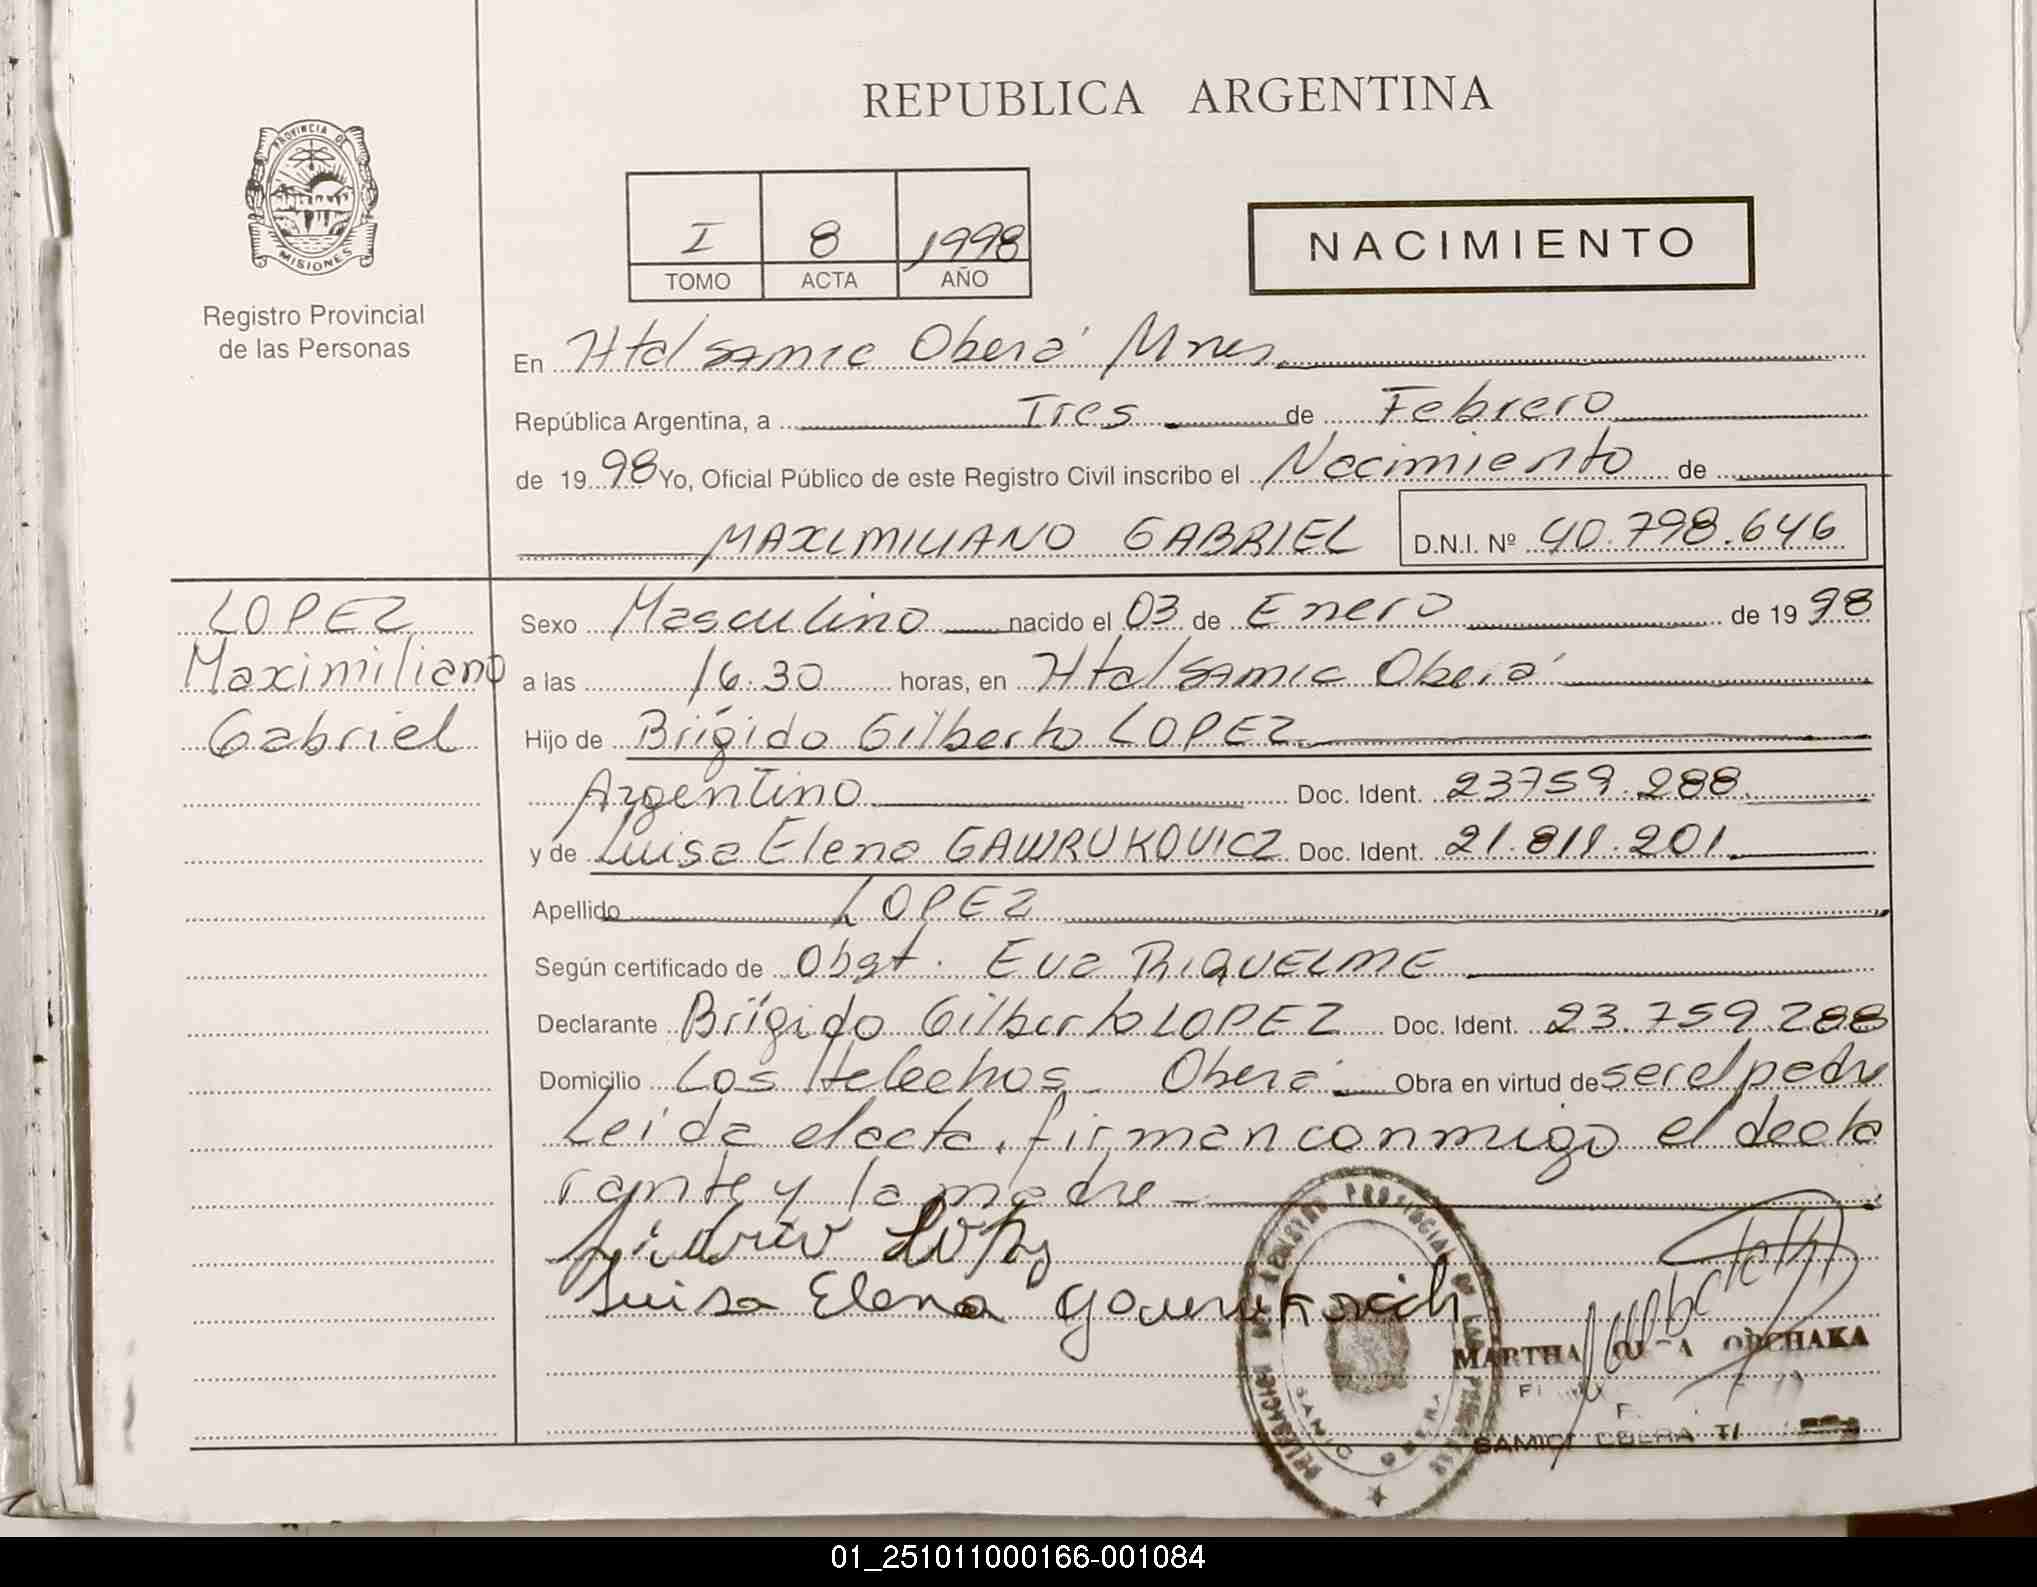 REPUBLICA ARGENTINA
PROVINCIA DE
MISIONES
Registro Provincial
de las Personas
I 8 1998
TOMO ACTA AÑO
NACIMIENTO
En Htal Samic Oberá Mnes
República Argentina, a Tres de Febrero
de 1998 Yo, Oficial Público de este Registro Civil inscribo el Nacimiento de
MAXIMILIANO GABRIEL D.N.I. Nº 40.798.646
LOPEZ
Maximiliano
Gabriel
Sexo Masculino nacido el 03 de Enero de 1998
a las 16.30 horas, en Htal Samic Oberá
Hijo de Brígido Gilberto LOPEZ
Argentino Doc. Ident. 23759.288
y de Luisa Elena GAWRUKOVICZ Doc. Ident. 21.811.201
Apellido LOPEZ
Según certificado de Obst. Eva RIQUELME
Declarante Brígido Gilberto LOPEZ Doc. Ident. 23.759.288
Domicilio Los Helechos - Oberá Obra en virtud de ser el padre
Leída el acta, firman conmigo el decla
rante y la madre
Luisa Elena
MARTHA ORCHAKA
01_251011000166-001084